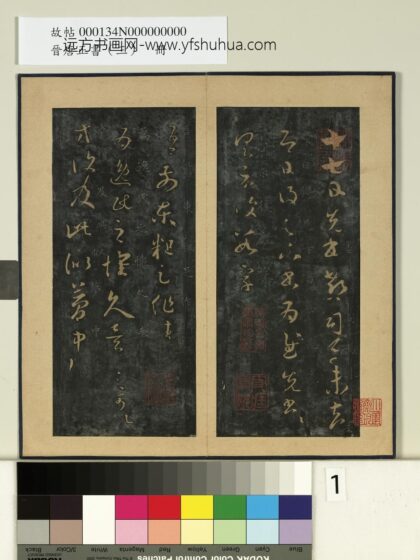 故帖 000134N000000000
远方书画网-www.yfshuhua.com
冊
十七日先書郗司馬未去
即日得足下書為慰先書以
具示復數字
吾前東粗足作佳
為逸民之懷久矣足下
方復及此似夢中
1
KODAK Color Control Patches
Blue Cyan Green Yellow Red Magenta White 3/Color Black